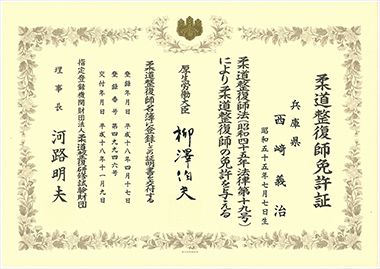 柔道整復師免許証
兵庫県
西崎義治
昭和五十五年七月七日生
柔道整復師法(昭和四十五年法律第十九号)
により柔道整復師の免許を与える
厚生労働大臣 柳澤伯夫
柔道整復師名簿に登録しこの証明書を交付する
登録年月日 平成十八年四月十七日
登録番号 第四九九四六号
交付年月日 平成十八年十一月九日
指定登録機関財団法人柔道整復研修試験財団
理事長 河路明夫